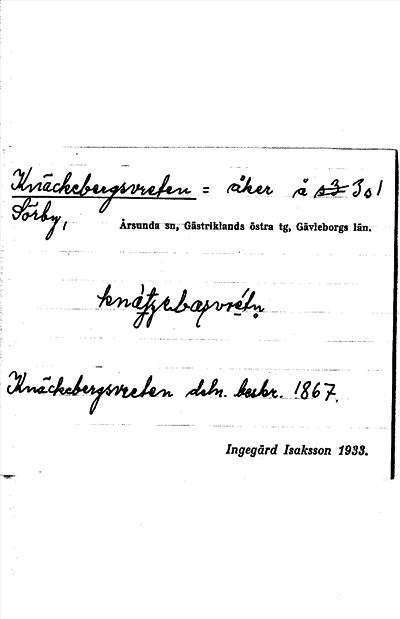 Knäckebergsvreten = åker å s3 3s1
Sörby,
Årsunda sn, Gästriklands östra tg, Gävleborgs län.
Knäckebergsvreten deln. beskr. 1867.
Ingegärd Isaksson 1933.